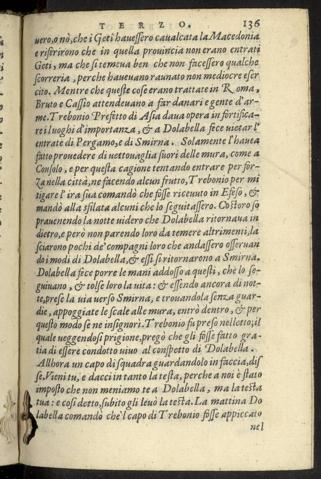 TERZO. 136
uero, o nò, che i Geti hauessero caualcata la Macedonia
e riferirono che in quella prouincia non erano entrati
Geti, ma che si temeua ben che non facessero qualche
scorreria, perche haueuano raunato non mediocre eser
cito. Mentre che queste cose erano trattate in Roma,
Bruto e Cassio attendeuano a far danari e gente d'ar-
me. Trebonio Prefitto di Asia daua opera in fortifica-
re i luoghi d'importanza, & a Dolabella fece uietar l'
entrate di Pergamo, e di Smirna. Solamente l'hauea
fatto prouedere di uettouaglia fuori delle mura, come a
Consolo, e per questa cagione tentando entrare per for-
za nella città, ne facendo alcun frutto, Trebonio per mi
tigare l'ira sua comandò che fosse riceuuto in Efeso, &
mandò alla sfilata alcuni che lo seguitassero. Costoro so
prauenendo la notte uidero che Dolabella ritornaua in
dietro, e però non parendo loro da temere altrimenti, la
sciarono pochi de' compagni loro che andassero osseruan
do i modi di Dolabella, & essi si ritornarono a Smirna.
Dolabella fece porre le mani addosso a questi, che lo se-
guiuano, & tolse loro la uita: & essendo ancora di not-
te, prese la uia uerso Smirna, e trouandola senza guar-
die, appoggiate le scale alle mura, entrò dentro, & per
questo modo se ne insignorì. Trebonio fu preso nel letto; il
quale ueggendosi prigione, pregò che gli fosse fatto gra-
tia di essere condotto uiuo al conspetto di Dolabella.
Allhora un capo di squadra guardandolo in faccia, dis
se, Vieni tu, e dacci in tanto la testa, perche a noi è stato
imposto che non meniamo te a Dolabella, ma la testa
tua: e così detto, subito gli leuò la testa. La mattina Do
labella comandò che'l capo di Trebonio fosse appiccato
nel